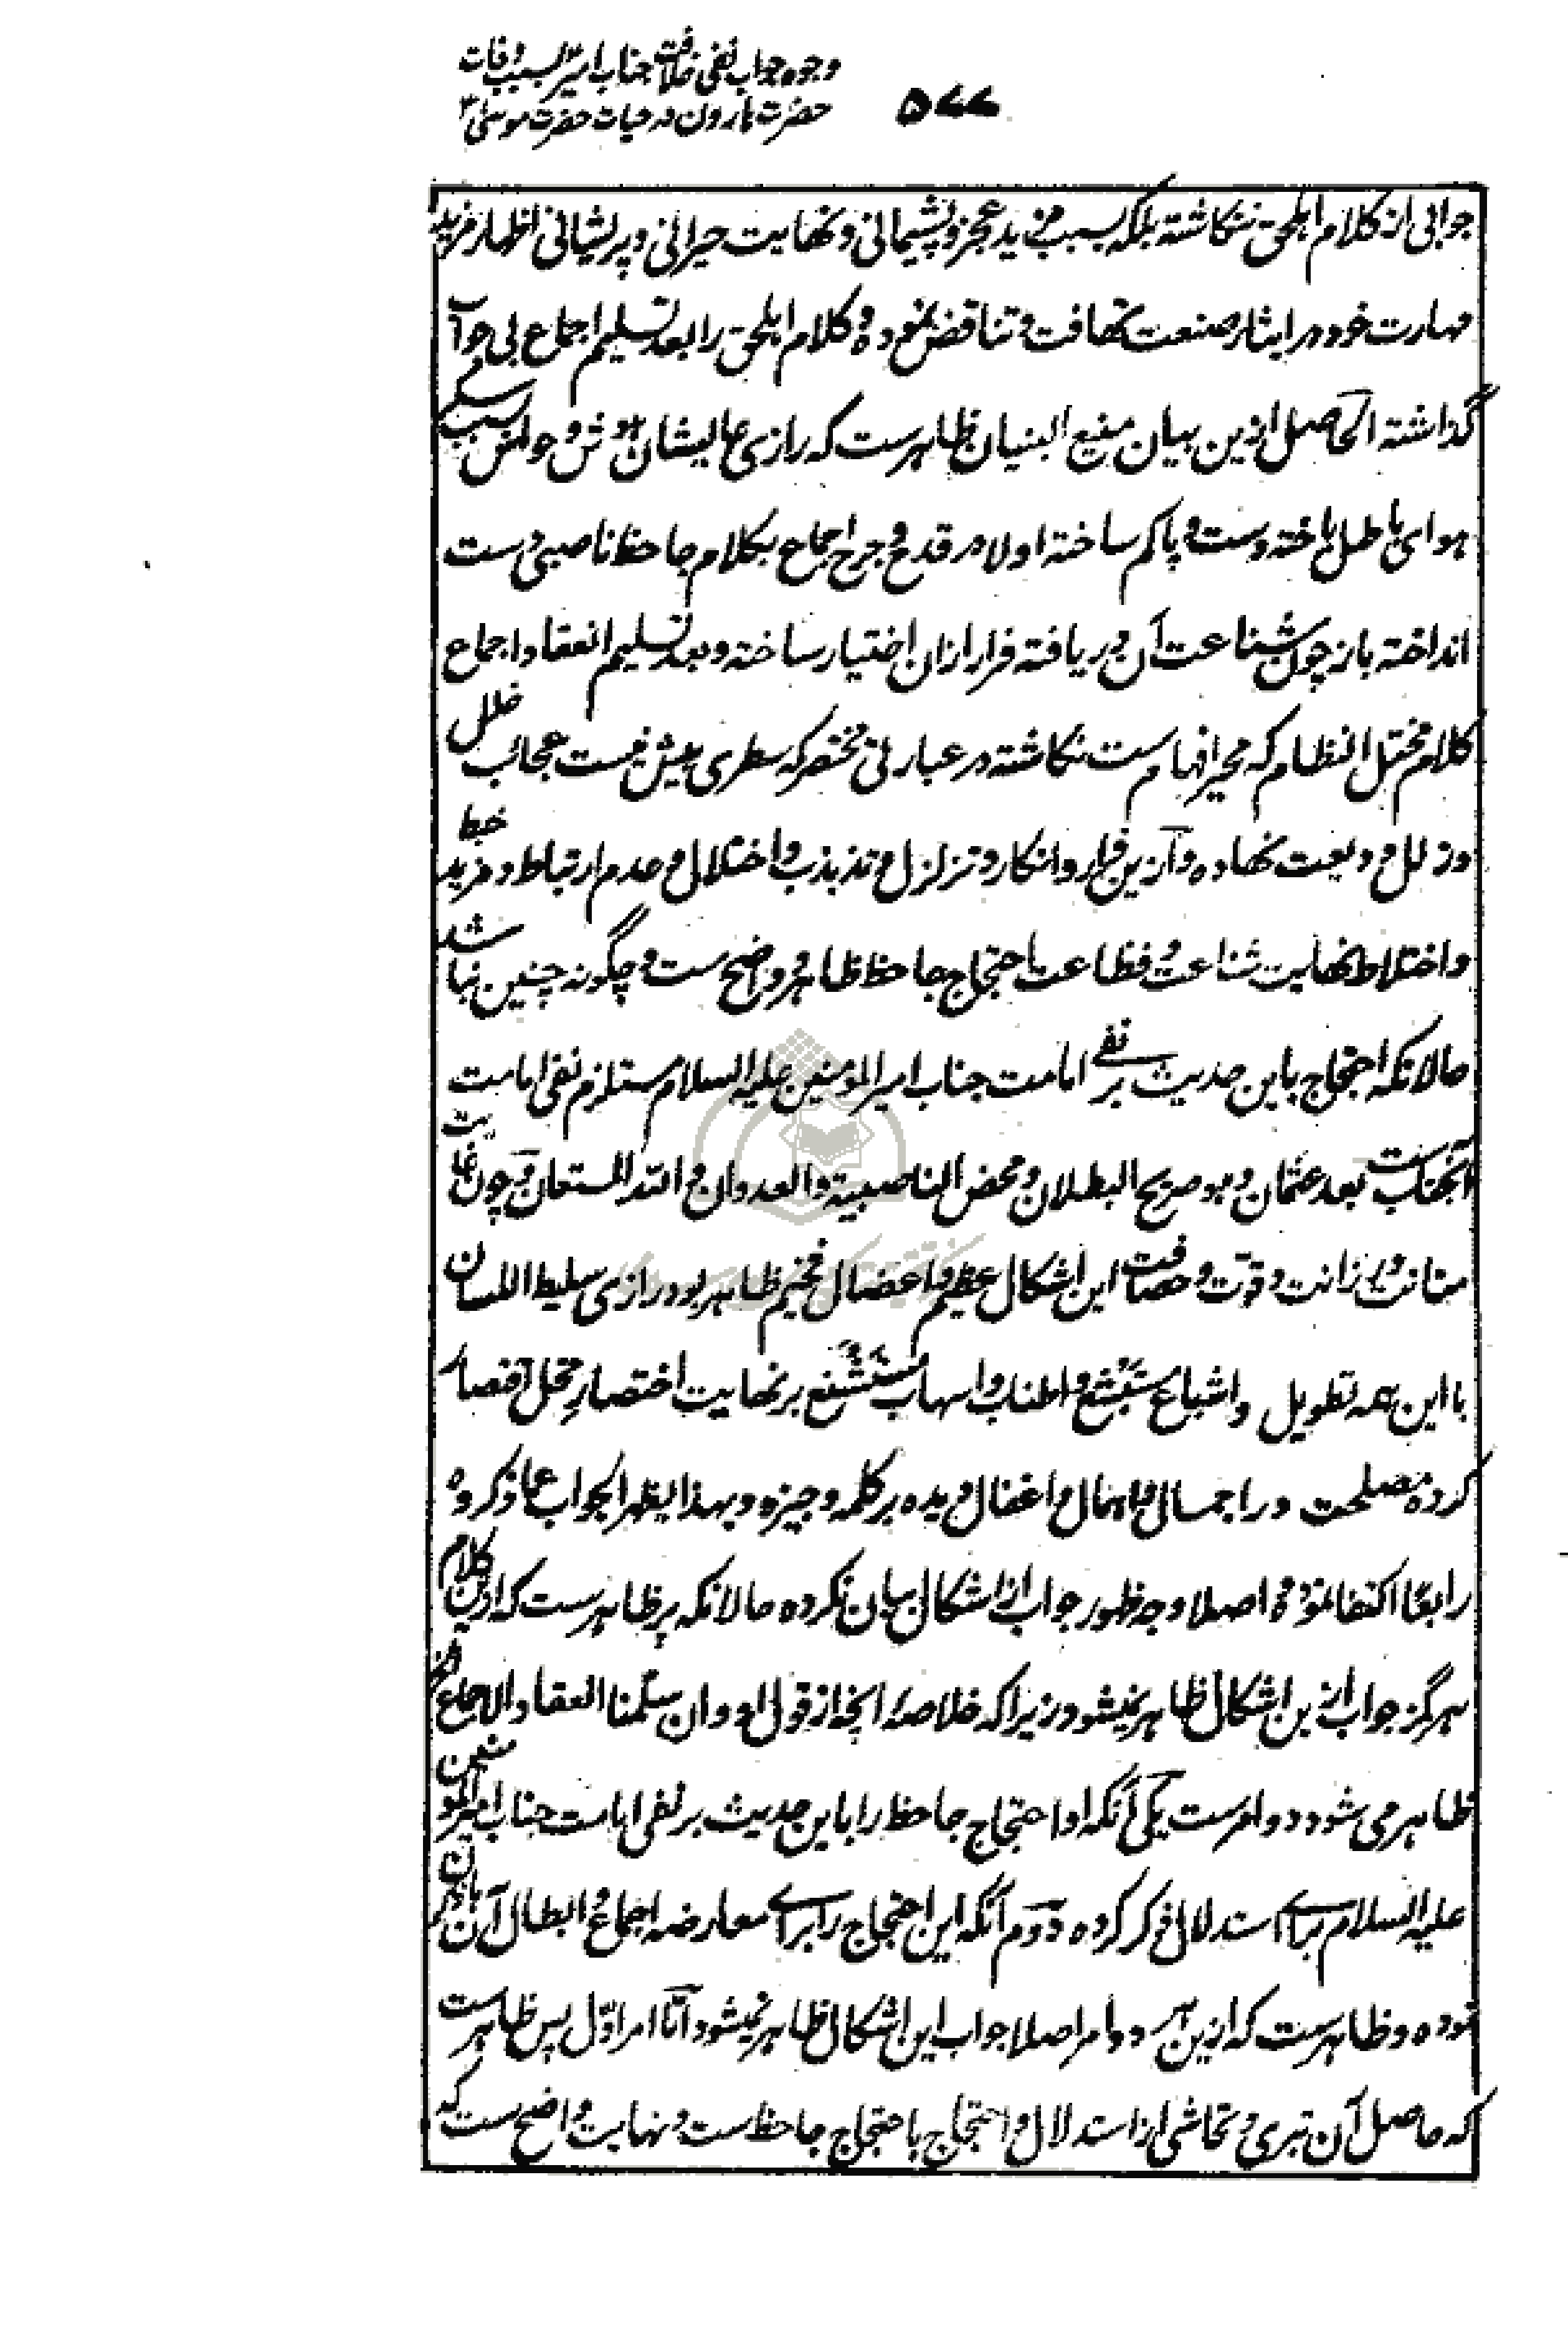 وجوه جواب نفی خلافت جناب امیرؑ بسبب وفات
حضرت هارون در حیات حضرت موسیٰؑ
۵۷۷
جوابی از کلام اهلحق ننگاشته بلکه بسبب مزید عجز و پشیمانی و نهایت حیرانی و پریشانی اظهار مزید
مهارت خود در ایثار صنعت تهافت و تناقض نموده و کلام اهلحق را بعد تسلیم اجماع بی جواب
گذاشته الحاصل ازین بیان منیع البنیان ظاهرست که رازی عالیشان هوش و حواس بسبب سکر
هوای باطل باخته و دست و پا گم ساخته اولا در قدح و جرح اجماع بکلام جاحظ ناصبی دست
انداخته باز چون شناعت آن دریافته فرار ازان اختیار ساخته و بعد تسلیم انعقاد اجماع
کلام مختل النظام که محیر افهام ست نگاشته در عبارتی مختصر که سطری بیش نیست عجائب خلل
و زلل ودیعت نهاده و ازین فرار و انکار و تزلزل و تذبذب و اختلال و عدم ارتباط و مزید خبط
و اختلاط نهایت شناعت و فظاعت احتجاج جاحظ ظاهر و واضح ست و چگونه چنین نباشد
حالانکه احتجاج باین حدیث بر نفی امامت جناب امیرالمؤمنین علیه السلام مستلزم نفی امامت
آنجناب ست بعد عثمان و هو صریح البطلان و محض الناصبیة و العدوان و الله المستعان و چون غایت
متانت و رزانت و قوت و حصافت این اشکال عظیم و اعضال فخیم ظاهر بود رازی سلیط اللسان
با این همه تطویل و اشباع مستبشع و اطناب و اسهاب مستشنع بر نهایت اختصار مخل اقتصار
کرده مصلحت در اجمال و اهمال و اغفال دیده بر کلمه وجیزه و بهذا یظهر الجواب عما ذکروه
رابعا اکتفا نموده و اصلا وجه ظهور جواب ازین اشکال بیان نکرده حالانکه پر ظاهرست که ازین کلام
هرگز جواب ازین اشکال ظاهر نمیشود زیرا که خلاصه آنچه از قول او و ان سلمنا انعقاد الاجماع الخ
ظاهر می شود دو امرست یکی آنکه او احتجاج جاحظ را باین حدیث بر نفی امامت جناب امیرالمؤمنین
علیه السلام برای استدلال ذکر کرده دوم آنکه این احتجاج را برای معارضه اجماع و ابطال آن بآن ذکر
نموده و ظاهرست که ازین هر دو امر اصلا جواب این اشکال ظاهر نمیشود اما امر اول پس ظاهرست
که حاصل آن تبری و تحاشی از استدلال و احتجاج باحتجاج جاحظ ست و نهایت واضح ست که